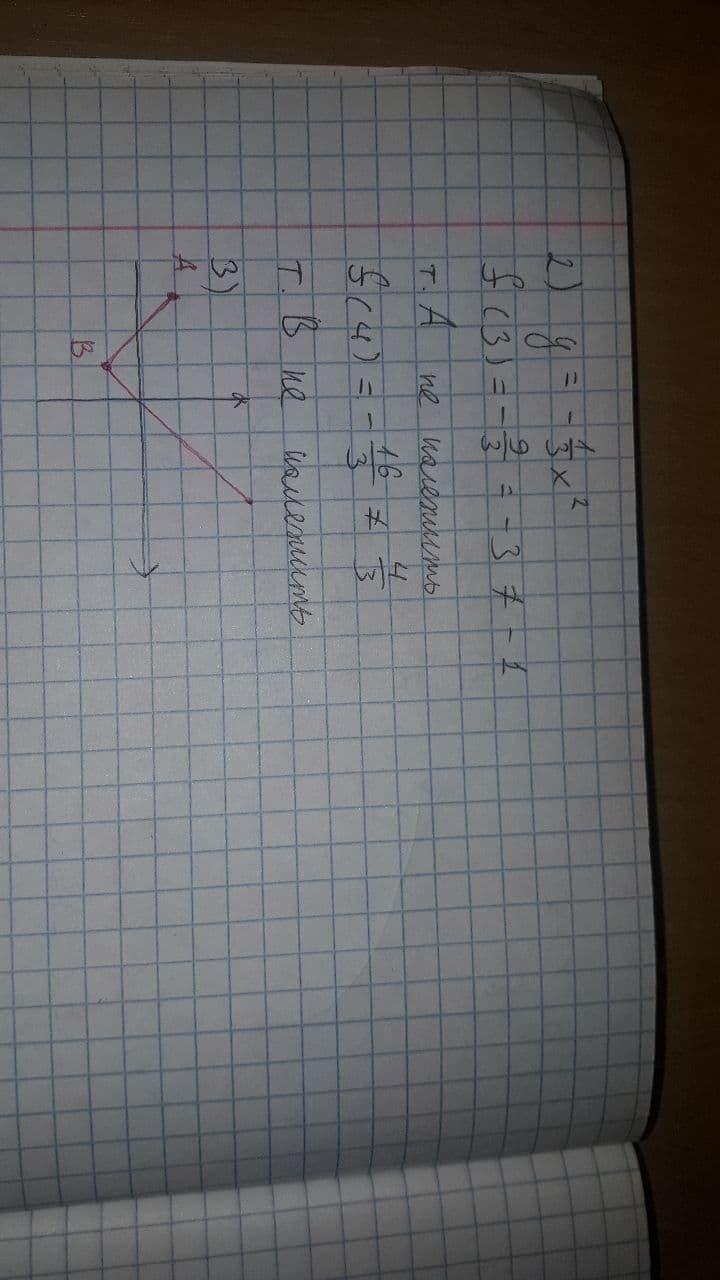 2) y = -1/3 x²
f(3) = -9/3 = -3 ≠ -1
т. A не належить
f(4) = -16/3 ≠ 4/3
т. B не належить
3)
A
B